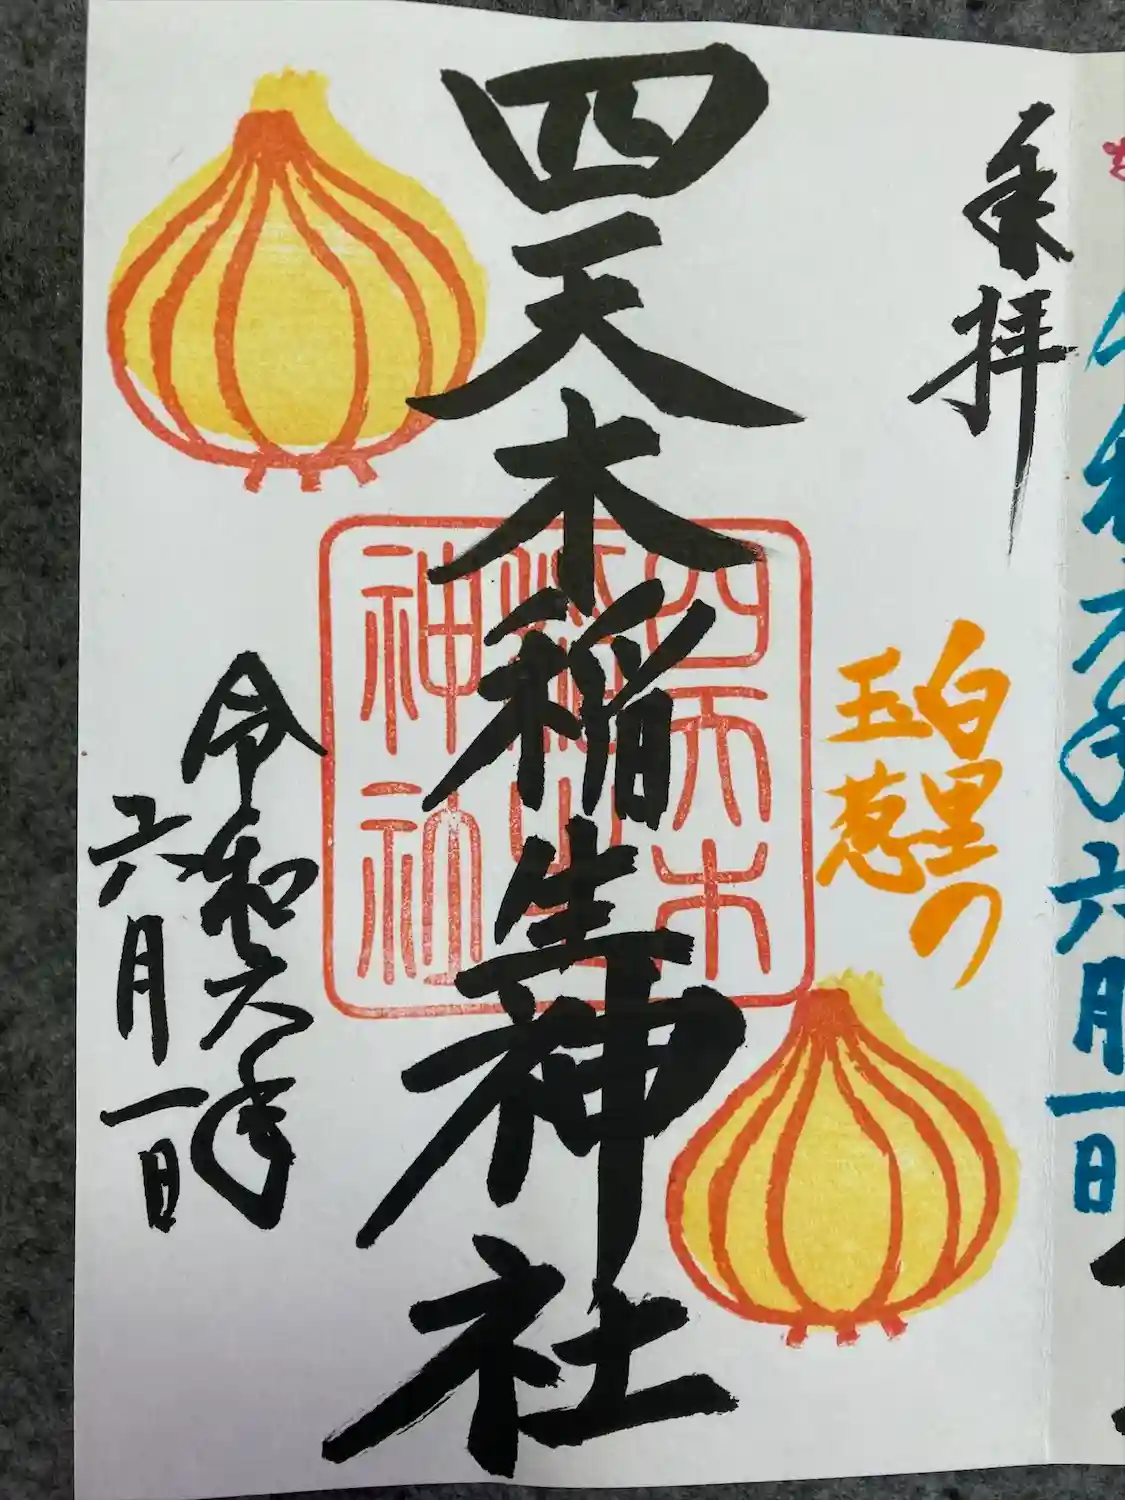 奉拝
白里の
玉葱
四天木稲生神社
四天木
稲生
神社
令和六年
六月一日
六年六月一日